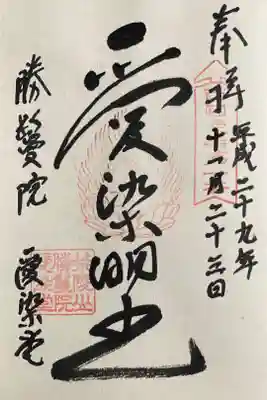 奉拝
平成二十九年
十一月二十三日
愛染明王
勝鬘院
愛染堂